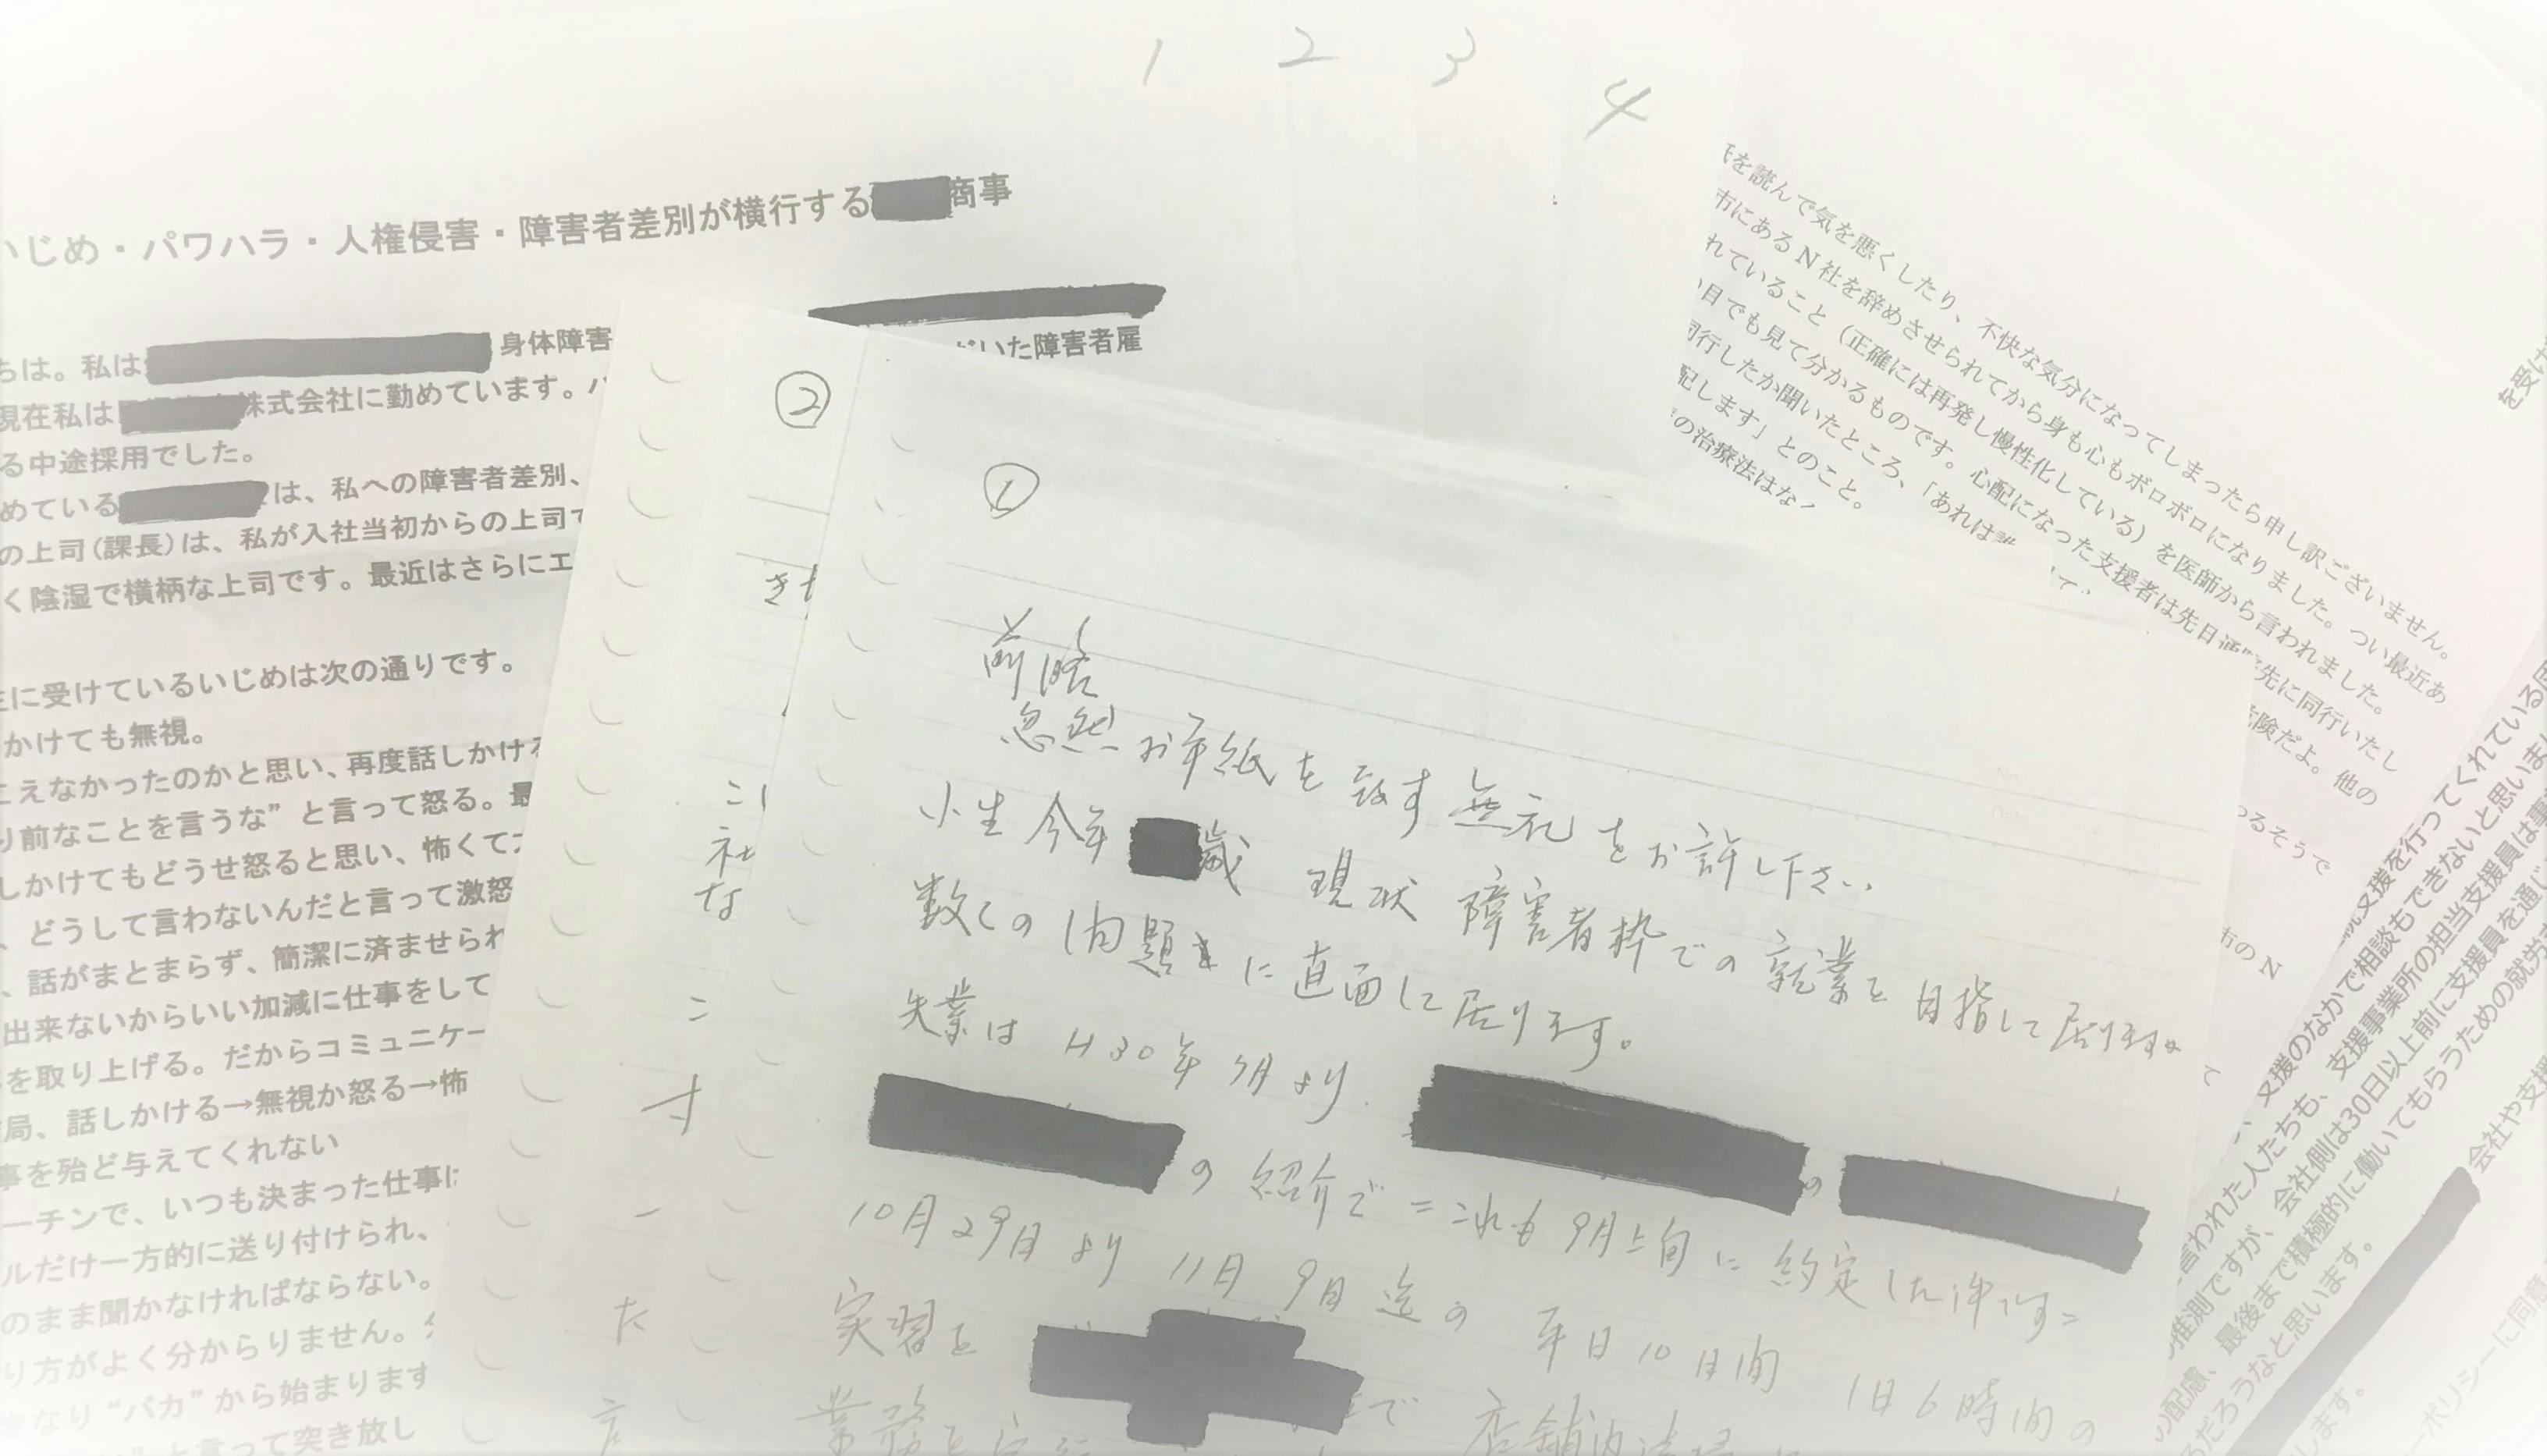 1 2 3 4
いじめ・パワハラ・人権侵害・障害者差別が横行する
商事
ちは。私は
身体障害
いた障害者雇
現在私は
株式会社に勤めています。
る中途採用でした。
めている
は、私への障害者差別、
の上司（課長）は、私が入社当初からの上司で
く陰湿で横柄な上司です。最近はさらにエ
に受けているいじめは次の通りです。
かけても無視。
こえなかったのかと思い、再度話しかけ
り前なことを言うな”と言って怒る。最
しかけてもどうせ怒ると思い、怖くて
、どうして言わないんだと言って激怒
、話がまとまらず、簡潔に済ませられ
出来ないからいい加減に仕事をして
を取り上げる。だからコミュニケー
局、話しかける→無視か怒る→怖
事を殆ど与えてくれない
ーチンで、いつも決まった仕事
ルだけ一方的に送り付けられ、
のまま聞かなければならない。
り方がよく分からりません。
きなり“バカ”から始まります
と言って突き放し
②
き
こ
社
な
こ
す
一
た
言
①
前略
忽然お手紙を致す無礼をお許し下さい
小生 今年
歳 現状 障害者枠での就業を目指して居ります。
数くの問題に直面して居ります。
失業は H30年 9月より
の紹介で=これも9月上旬に約定した件です=
10月29日より 11月9日迄の 平日10日間 1日6時間の
実習を
業務を
で 店舗内清掃
を読んで気を悪くしたり、不快な気分になってしまったら申し訳ございません。
市にあるN社を辞めさせられてから身も心もボロボロになりました。つい最近あ
れていること（正確には再発し慢性化している）を医師から言われました。
目でも見て分かるものです。心配になった支援者は先日通
先に同行いたし
同行したか聞いたところ、「あれは
険だよ。他の
配します」とのこと。
の治療法はな
るそうで
市のN
て
を受け
支援を行ってくれている
支援のなかで相談もできないと思いま
言われた人たちも、支援事業所の担当支援員は事
推測ですが、会社側は30日以上前に支援員を通じ
配慮、最後まで積極的に働いてもらうための就労
るだろうなと思います。
会社や支援
します。
ーポリシーに同意